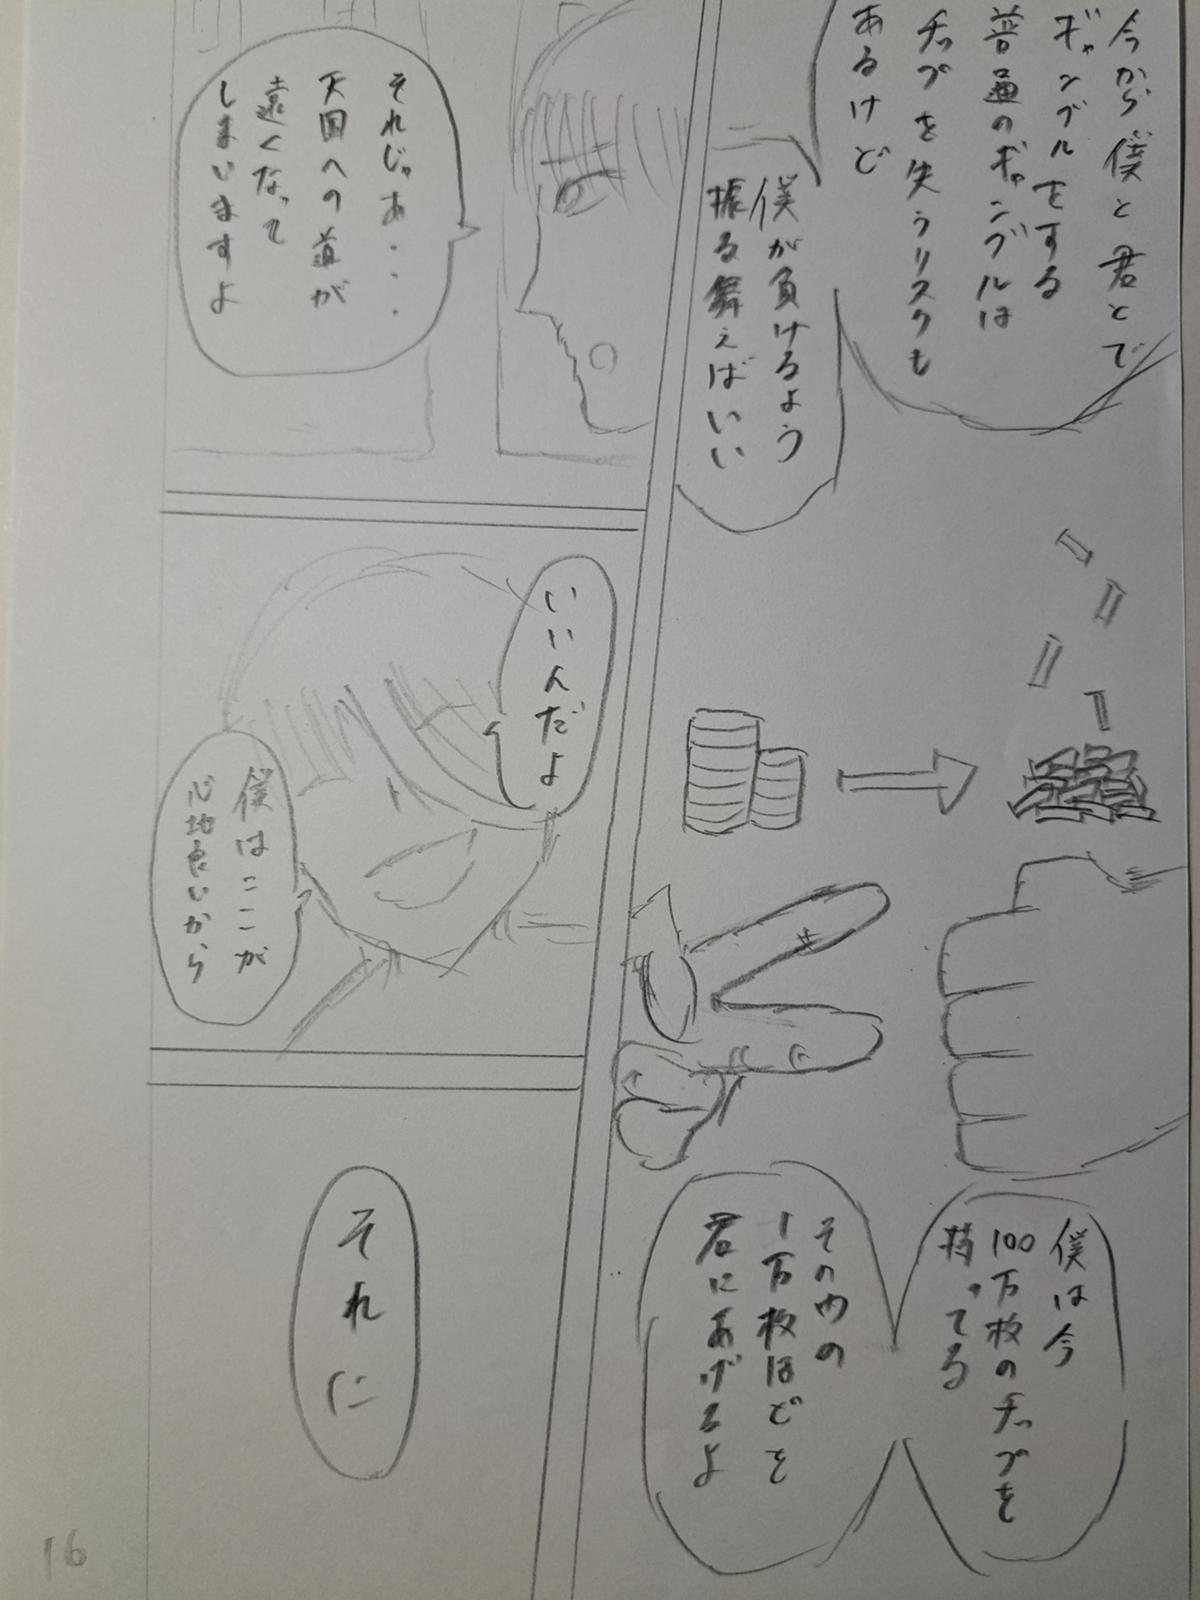 今から僕と君とで
ギャンブルをする
普通のギャンブルは
チップを失うリスクも
あるけど
僕が負けるよう
振る舞えばいい
僕は今
100万枚のチップを
持ってる
その内の
1万枚ほどを
君にあげるよ
それじゃあ・・・
天国への道が
遠くなって
しまいますよ
いいんだよ
僕はここが
心地良いから
それに
16